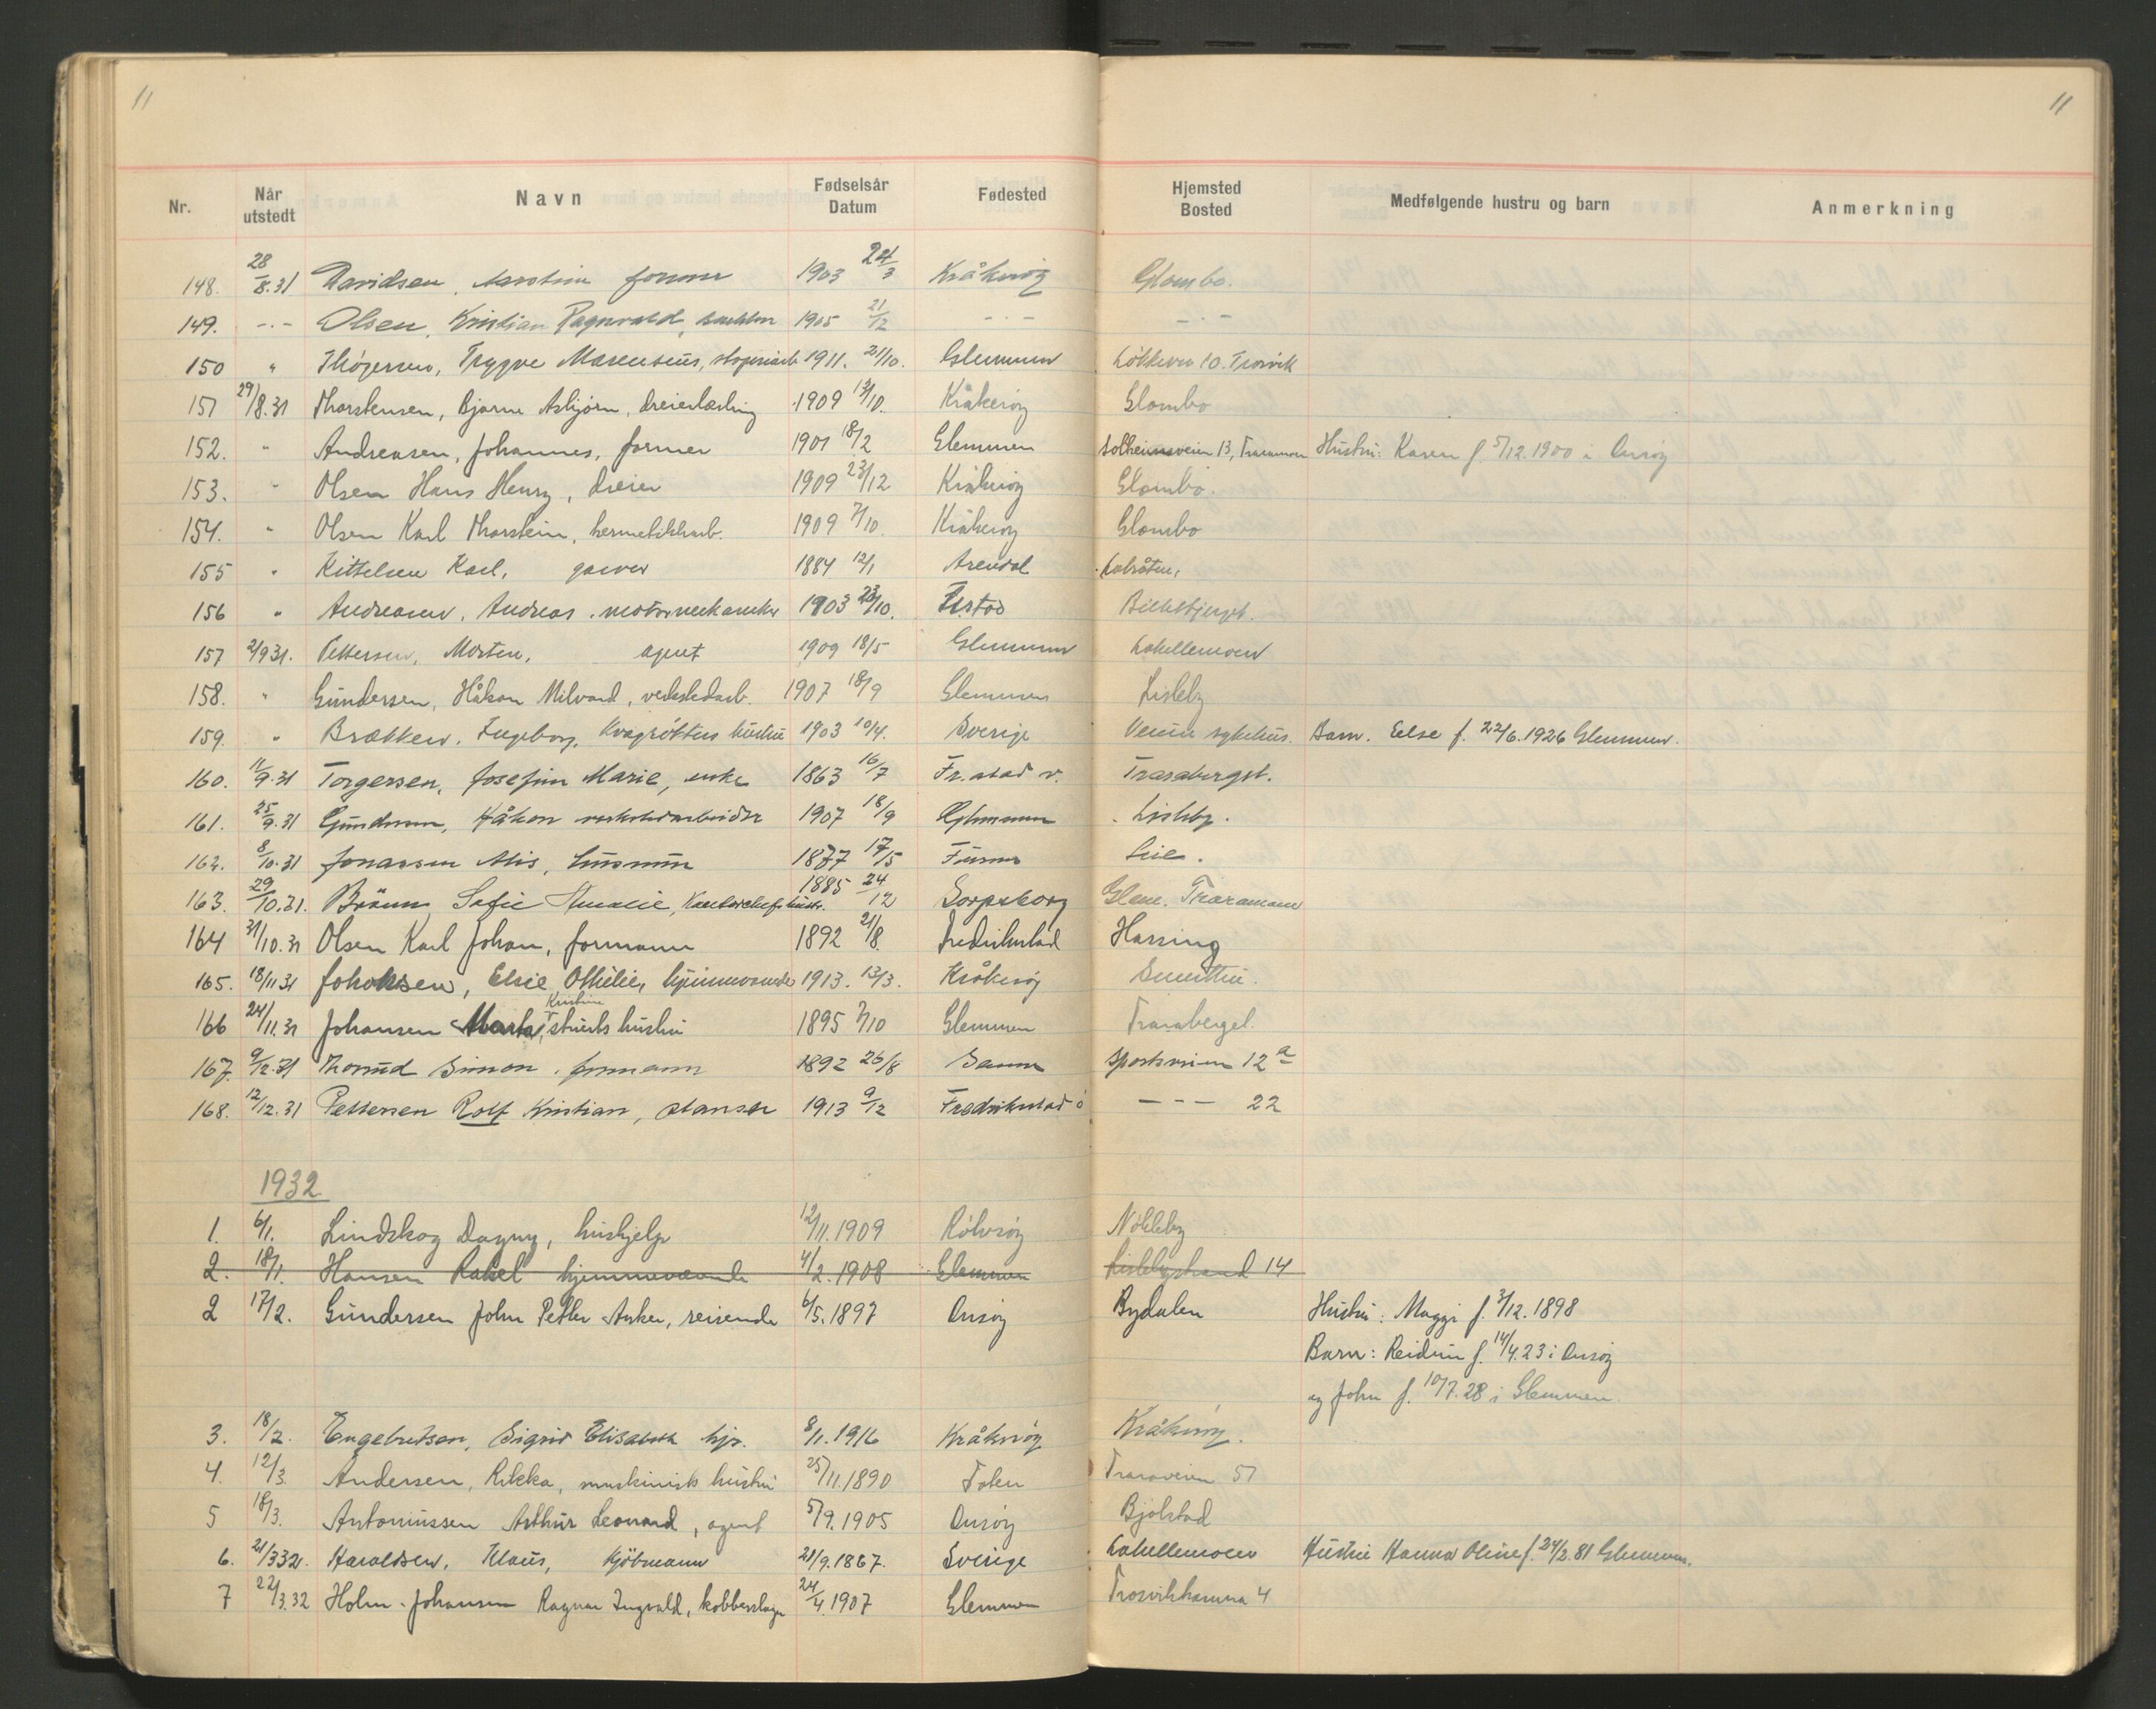 11
11
Nr. Når utstedt Navn Fødselsår Datum Fødested Hjemsted Bosted Medfølgende hustru og barn Anmerkning
148. 28/8.31 Davidsen, former 1903 24/3 Kråkerøy Glombo.
149. -·- Olsen, Kristian Ragnvald, 1905 21/12 -·- -·-
150 " Thøgersen, Trygve Marensius, 1911. 21/10. Glemmen Løkkevn 10. Trosvik
151 29/8.31 Thorstensen, Bjarne Asbjørn, dreierlærling 1909 13/10. Kråkerøy Glombo
152. " Andreasen, Johannes, former 1901 18/2 Glemmen Solheimsveien 13, Traramoen Hustru: Karen f. 5/12.1900 i Onsøy
153. " Olsen Hans Henry, dreier 1909 23/12 Kråkerøy Glombo.
154. " Olsen Karl Thorstein, hermetikkarb. 1909 7/10. Kråkerøy Glombo
155 " Kittelsen Karl, garver 1884 12/1 Arendal Labråten,
156 " Andreassen, Andreas, motormekaniker 1903 23/10. Fr.stad
157 2/9 31. Pettersen, Morten, agent 1909 18/5 Glemmen Lahellemoen
158. " Gundersen, Håkon Milvard, verkstedarb. 1907 18/9 Glemmen Lisleby
159. " Brækken, Ingeborg, hustru 1903 10/4. Sverige Veum sykehus. Barn. Else f. 22/6.1926 Glemmen.
160. 11/9.31 Torgersen, Josefine Marie, enke 1863 16/7 Fr.stad v. Trarabergt.
161. 25/9.31 Gundersen, Håkon verkstedarbeider 1907 18/9 Glemmen Lisleby.
162. 8/10.31 Jonassen Alis, husmor 1877 17/5 Furnes Lie.
163. 29/10.31. Sofie Amalie, Kontorchefs hustr. 1885 24/12 Sarpsborg Glem. Traramoen
164 31/10.31 Olsen Karl Johan, formann 1892 21/8. Fredrikstad Hassing
165. 18/11 31 Johansen, Elsie Othilie, hjemmeværende 1913. 13/3. Kråkerøy Smertu.
166 24/11.31 Johansen Marta Kristine, stuerts hustru 1895 7/10 Glemmen Traraberget.
167. 9/12.31 Thorud Simon, formann 1892 26/8 Sportsveien 12 a
168. 12/12.31 Pettersen Rolf Kristian, stanser 1913 9/12 Fredrikstad ö --- 22
1932
1. 6/1. Lindskog Dagny, hushjelp 12/11.1909 Rolvsøy Nøkleby
2. 18/1. Hansen Rakel hjemmeværende 4/2.1908 Glemmen Lislebystrand 14
2 17/2. Gundersen John Petter Anker, reisende 6/5.1897 Onsøy Bydalen Hustru: Maggi f. 3/12.1898
Barn: Reidun f. 14/4.23 i Onsøy
og John f. 10/7.28 i Glemmen.
3. 18/2. Engebretsen, Sigrid Elisabeth hjv. 8/1.1916 Kråkerøy Kråkerøy.
4. 12/3 Andersen, Rikka, maskinists hustru 25/11.1890 Toten Traraveien 51
5 18/3. Antoniussen Arthur Leonard, agent 5/9.1905 Onsøy Bjølstad
6. 21/3 32. Haraldsen, Klaus, kjöbmann 21/9.1867. Sverige Lahellemoen Hustru Hanna Oline f. 24/2.81 Glemmen.
7 22/3.32 Holm-Johansen Ragnar Ingvald, kobberslager 24/4.1907 Glemmen Trosvikkammen 4